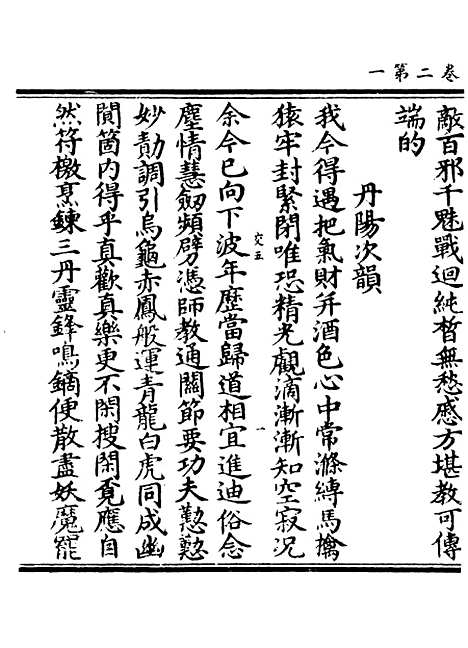 卷二第一
敵百邪千魁戰迴純晳無愁慼方堪教可傳
端的
丹陽次韻
我今得遇把氣財并酒色心中常滌縛馬擒
猿牢封緊閉唯恐精光覰滴漸漸知空寂况
余今已向下波年歷當歸道相宜進迪俗念
交五
一
塵情慧劒頻劈憑師教通關節要功夫懃懃
妙勣調引烏龜赤鳳般運青龍白虎同成幽
閴箇内得乎真歡真樂更不閑搜閑覔應自
然符檄烹鍊三丹靈鋒鳴鏑使散盡妖魔罷